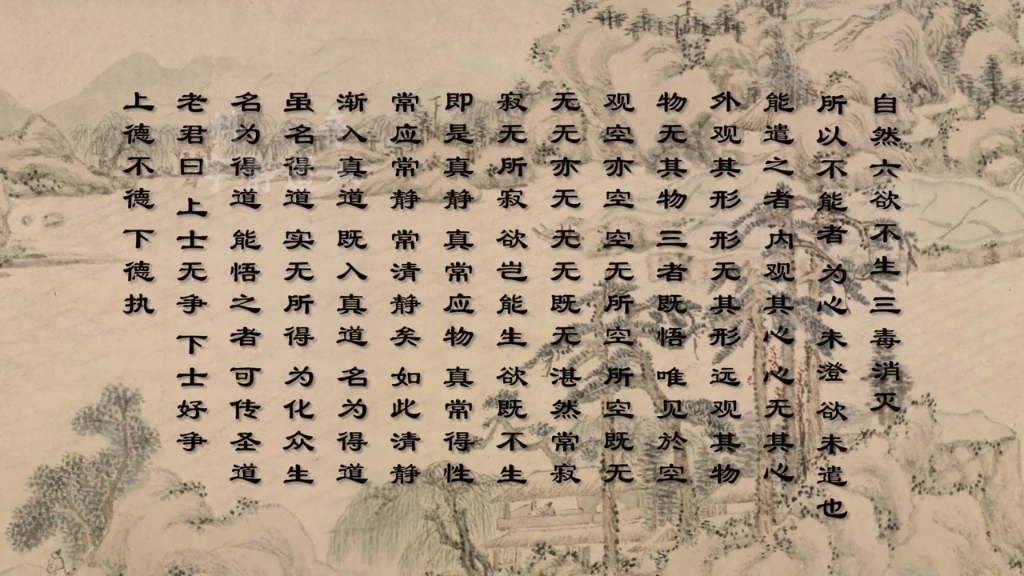 自然六欲不生 三毒消灭
所以不能者 为心未澄 欲未遣也
能遣之者 内观其心 心无其心
外观其形 形无其形 远观其物
物无其物 三者既悟 唯见於空
观空亦空 空无所空 所空既无
无无亦无 无无既无 湛然常寂
寂无所寂 欲岂能生 欲既不生
即是真静 真常应物 真常得性
常应常静 常清静矣 如此清静
渐入真道 既入真道 名为得道
虽名得道 实无所得 为化众生
名为得道 能悟之者 可传圣道
老君曰 上士无争 下士好争
上德不德 下德执